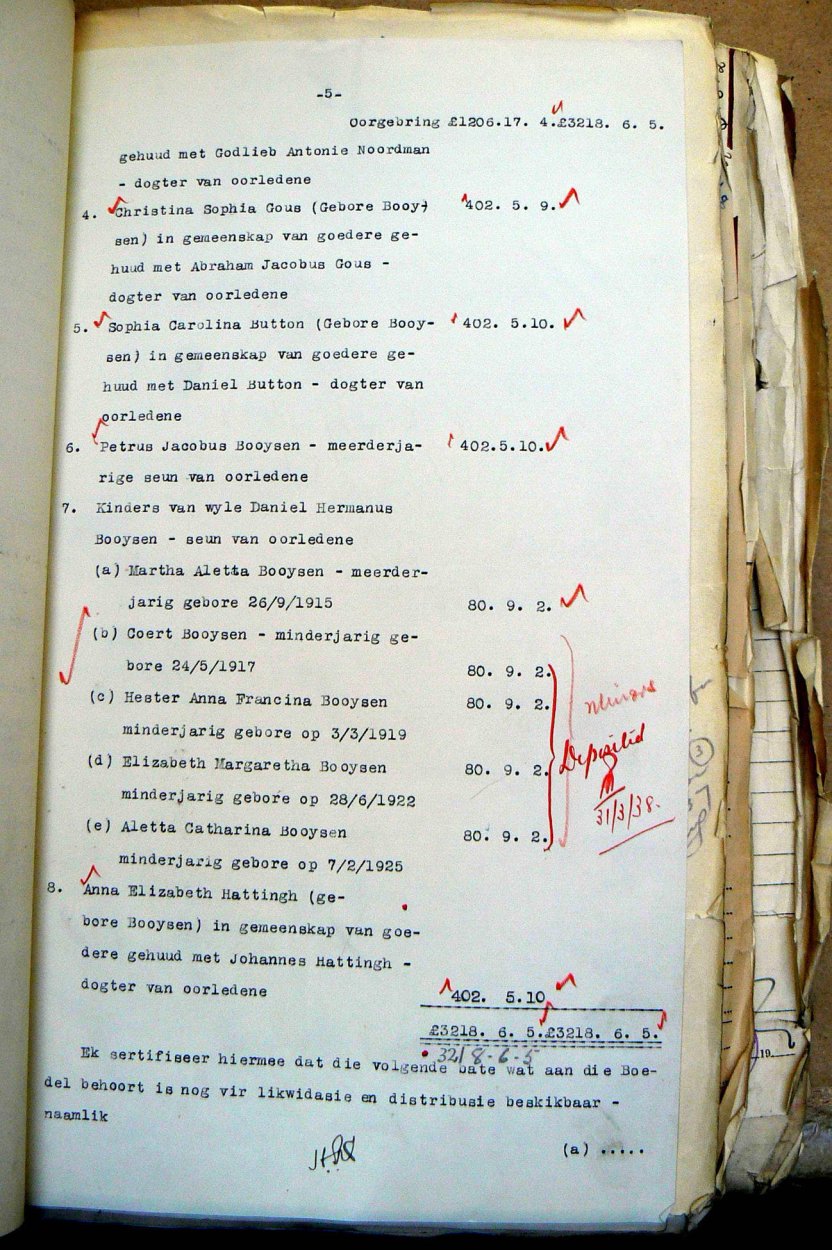 -5-
Oorgebring £1206.17. 4.£3218. 6. 5.
gehuud met Godlieb Antonie Noordman
- dogter van oorledene
4. Christina Sophia Gous (Gebore Booy- 402. 5. 9.
sen) in gemeenskap van goedere ge-
huud met Abraham Jacobus Gous -
dogter van oorledene
5. Sophia Carolina Button (Gebore Booy- 402. 5.10.
sen) in gemeenskap van goedere ge-
huud met Daniel Button - dogter van
oorledene
6. Petrus Jacobus Booysen - meerderja- 402.5.10.
rige seun van oorledene
7. Kinders van wyle Daniel Hermanus
Booysen - seun van oorledene
(a) Martha Aletta Booysen - meerder-
jarig gebore 26/9/1915 80. 9. 2.
(b) Coert Booysen - minderjarig ge-
bore 24/5/1917 80. 9. 2.
(c) Hester Anna Francina Booysen 80. 9. 2.
minderjarig gebore op 3/3/1919
(d) Elizabeth Margaretha Booysen 80. 9. 2.
minderjarig gebore op 28/6/1922
(e) Aletta Catharina Booysen 80. 9. 2.
minderjarig gebore op 7/2/1925
Minors
Deposited
31/3/38.
8. Anna Elizabeth Hattingh (ge-
bore Booysen) in gemeenskap van goe-
dere gehuud met Johannes Hattingh -
dogter van oorledene 402. 5.10
£3218. 6. 5.£3218. 6. 5.
3218-6-5
Ek sertifiseer hiermee dat die volgende bate wat aan die Boe-
del behoort is nog vir likwidasie en distribusie beskikbaar -
naamlik
(a) .....
19